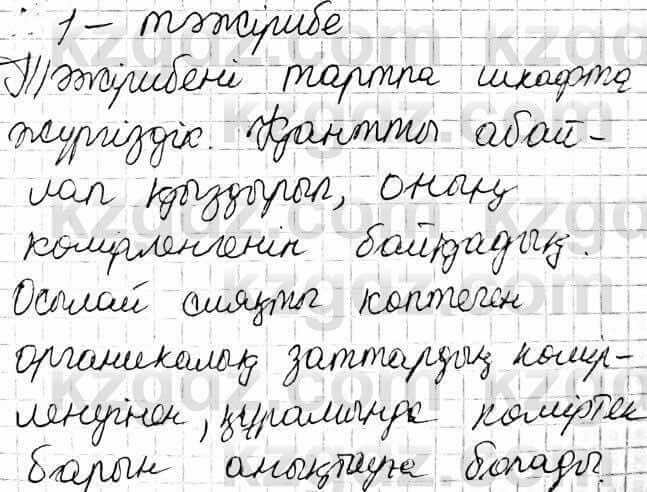 1 – тәжірибе
Тәжірибені тартпа шкафта
жүргіздік. Қантты абай-
лап қыздырып, оның
көмірленгенін байқадық.
Осылай сияқты көптеген
органикалық заттардың көмір-
ленуінен, құрамында көміртек
барын анықтауға болады.